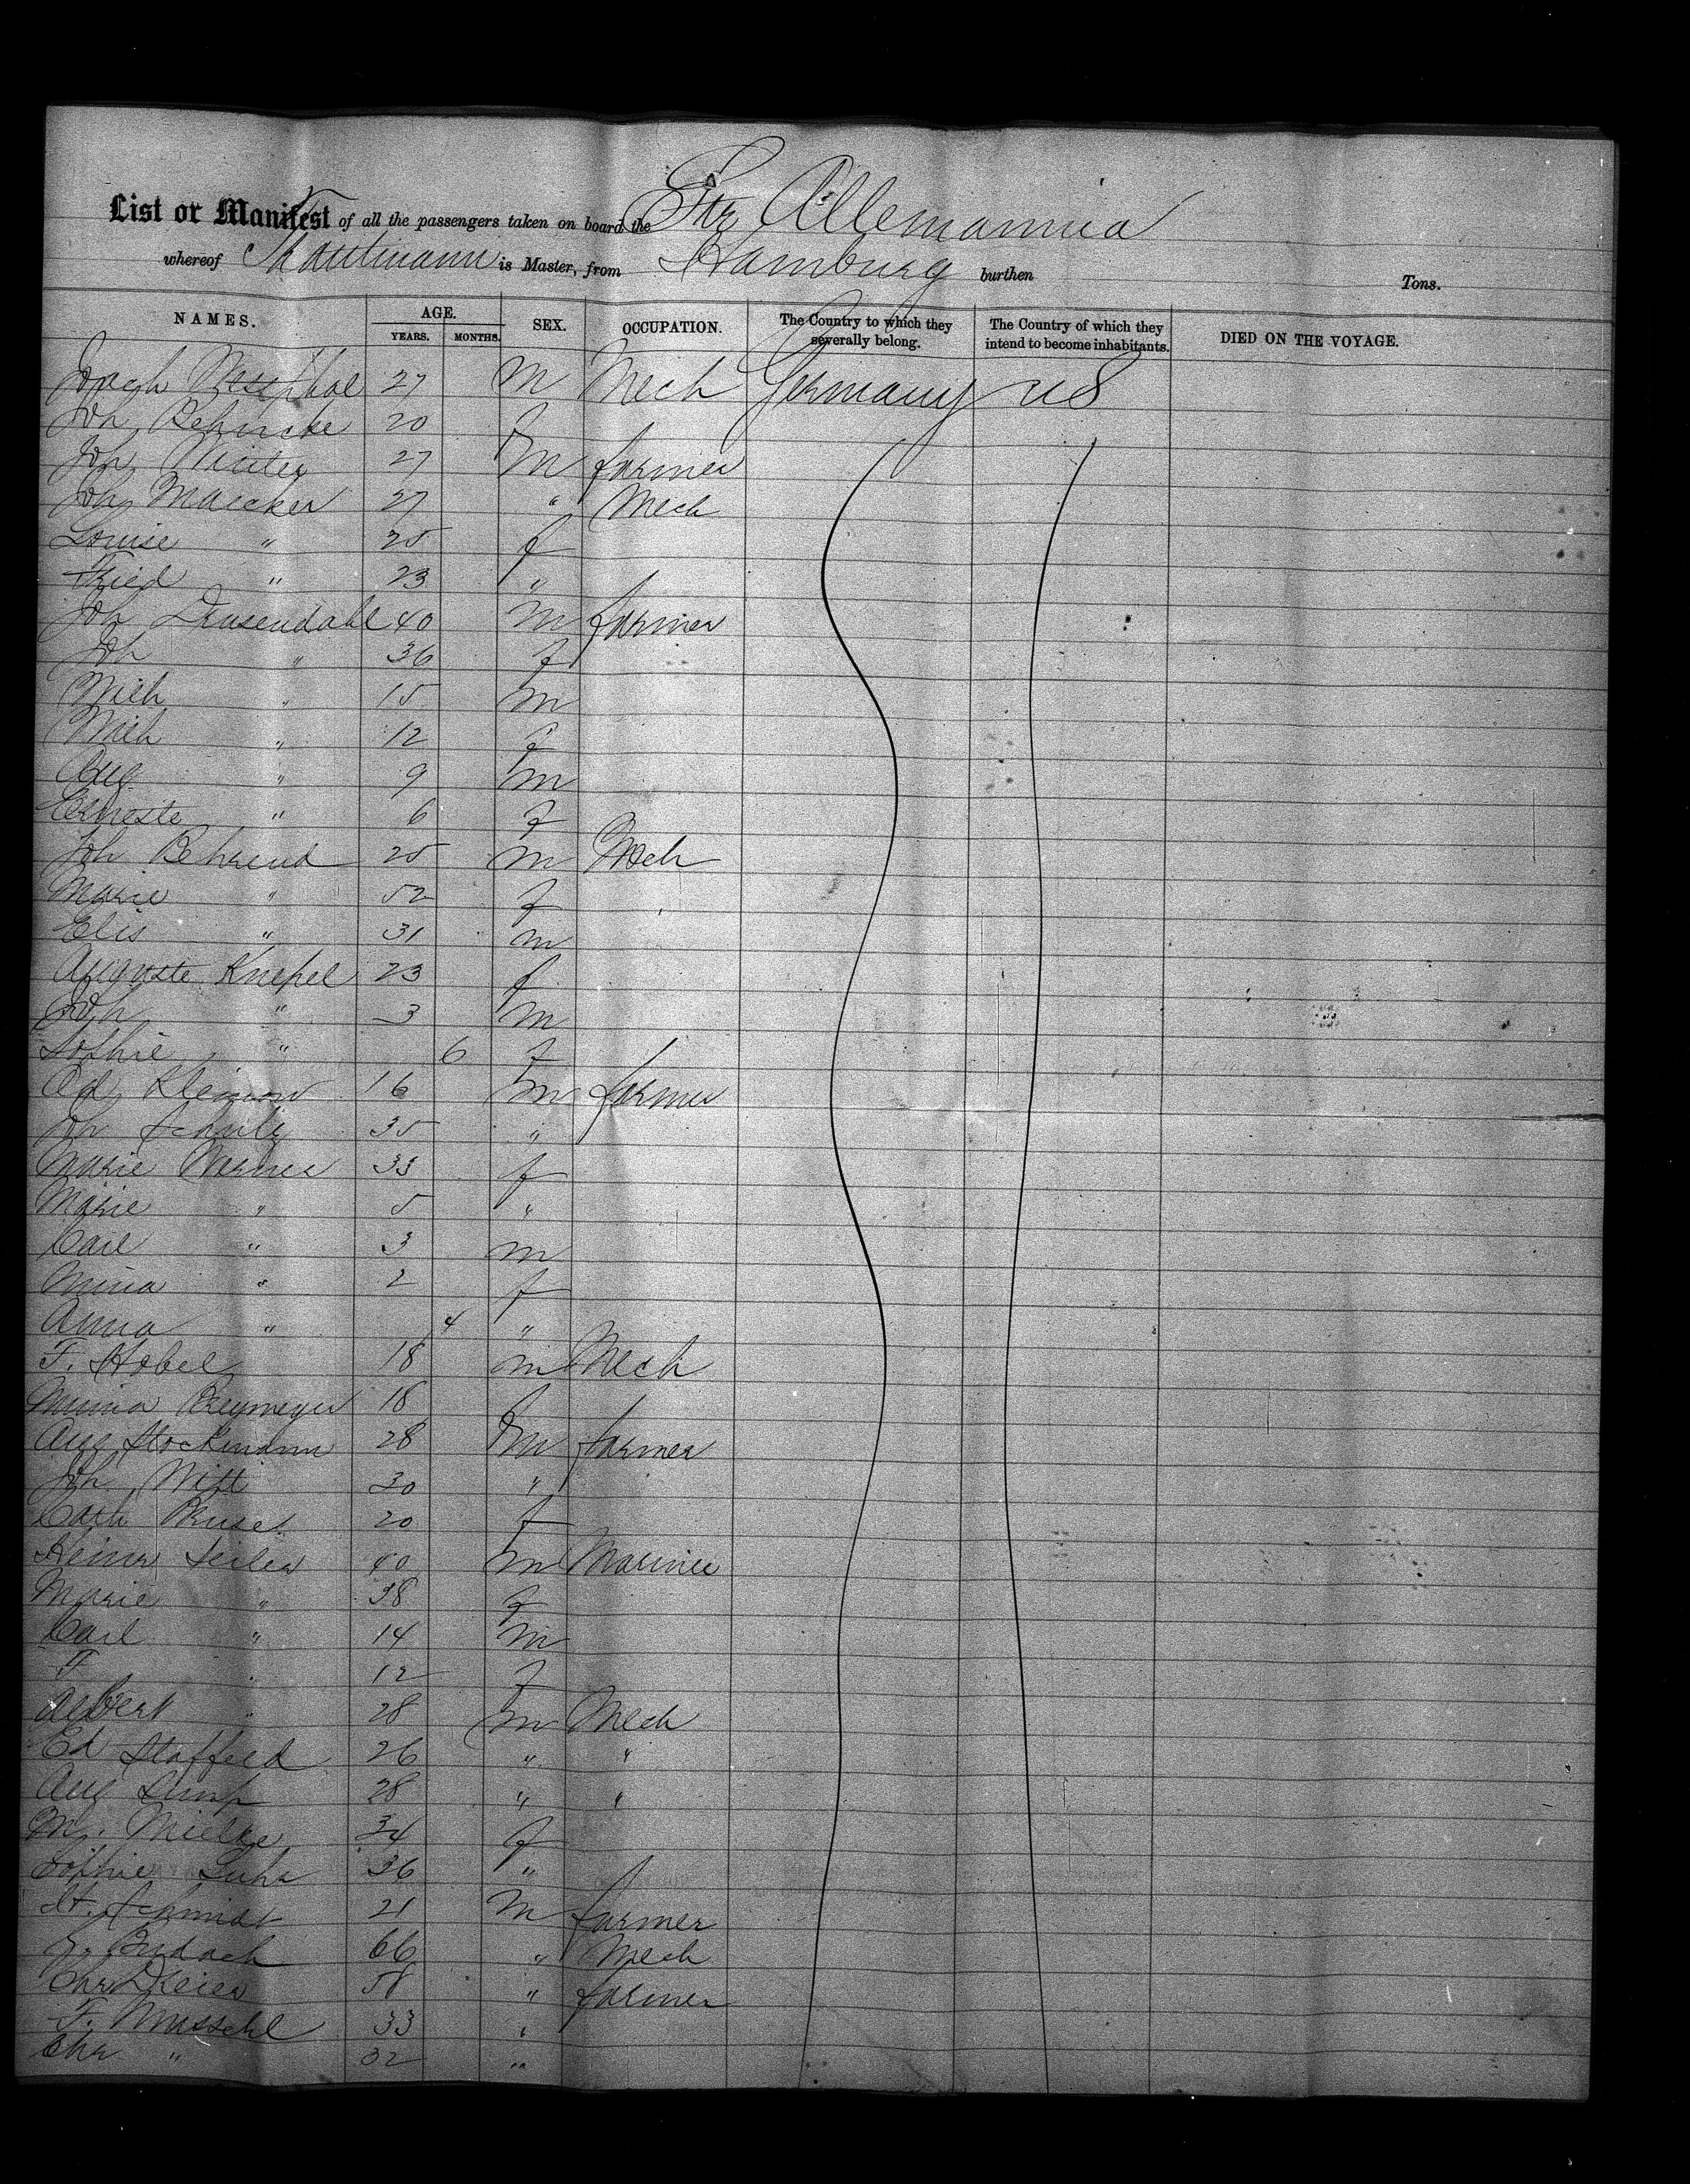 List or Manifest of all the passengers taken on board the Str Allemannia
whereof Trautmann is Master, from Hamburg burthen Tons.
NAMES. AGE. YEARS. MONTHS. SEX. OCCUPATION. The Country to which they severally belong. The Country of which they intend to become inhabitants. DIED ON THE VOYAGE.
27 M Mech Germany US
Joh 20 f
Joh 27 M farmer
Joh Maecker 27 " Mech
Louise " 25 f
Fried " 23 "
Joh Drusendahl 40 M farmer
Joh " 36 f
Wilh " 15 m
Wilh " 12 f
Aug " 9 m
Erneste " 6 f
Joh Behrend 25 m Mech
Marie " 52 f
Elis " 31 m
Auguste Knepel 23 f
Joh " 3 m
Sophie " 6 f
Ad 16 m farmer
Joh Schulz 35 "
Marie Werner 33 f
Marie " 5 "
Carl " 3 m
Mina " 2 f
Anna " 4 "
F. Hobel 18 m Mech
Minna Breymeyer 18 f
Aug Stockmann 28 m farmer
Joh Witt 30 "
Cath Kruse 20 f
Heinr Seiler 40 m Mariner
Marie " 38 f
Carl " 14 m
F " 12 f
Albert " 28 m Mech
Ed Staffeld 26 " "
Aug 28 " "
M. Mielke 34 f
Sophie Luhr 36 "
H. Schmidt 21 m farmer
Budach 66 " Mech
Chr Dreier 58 " farmer
F. Musschl 33 "
Chr " 32 "